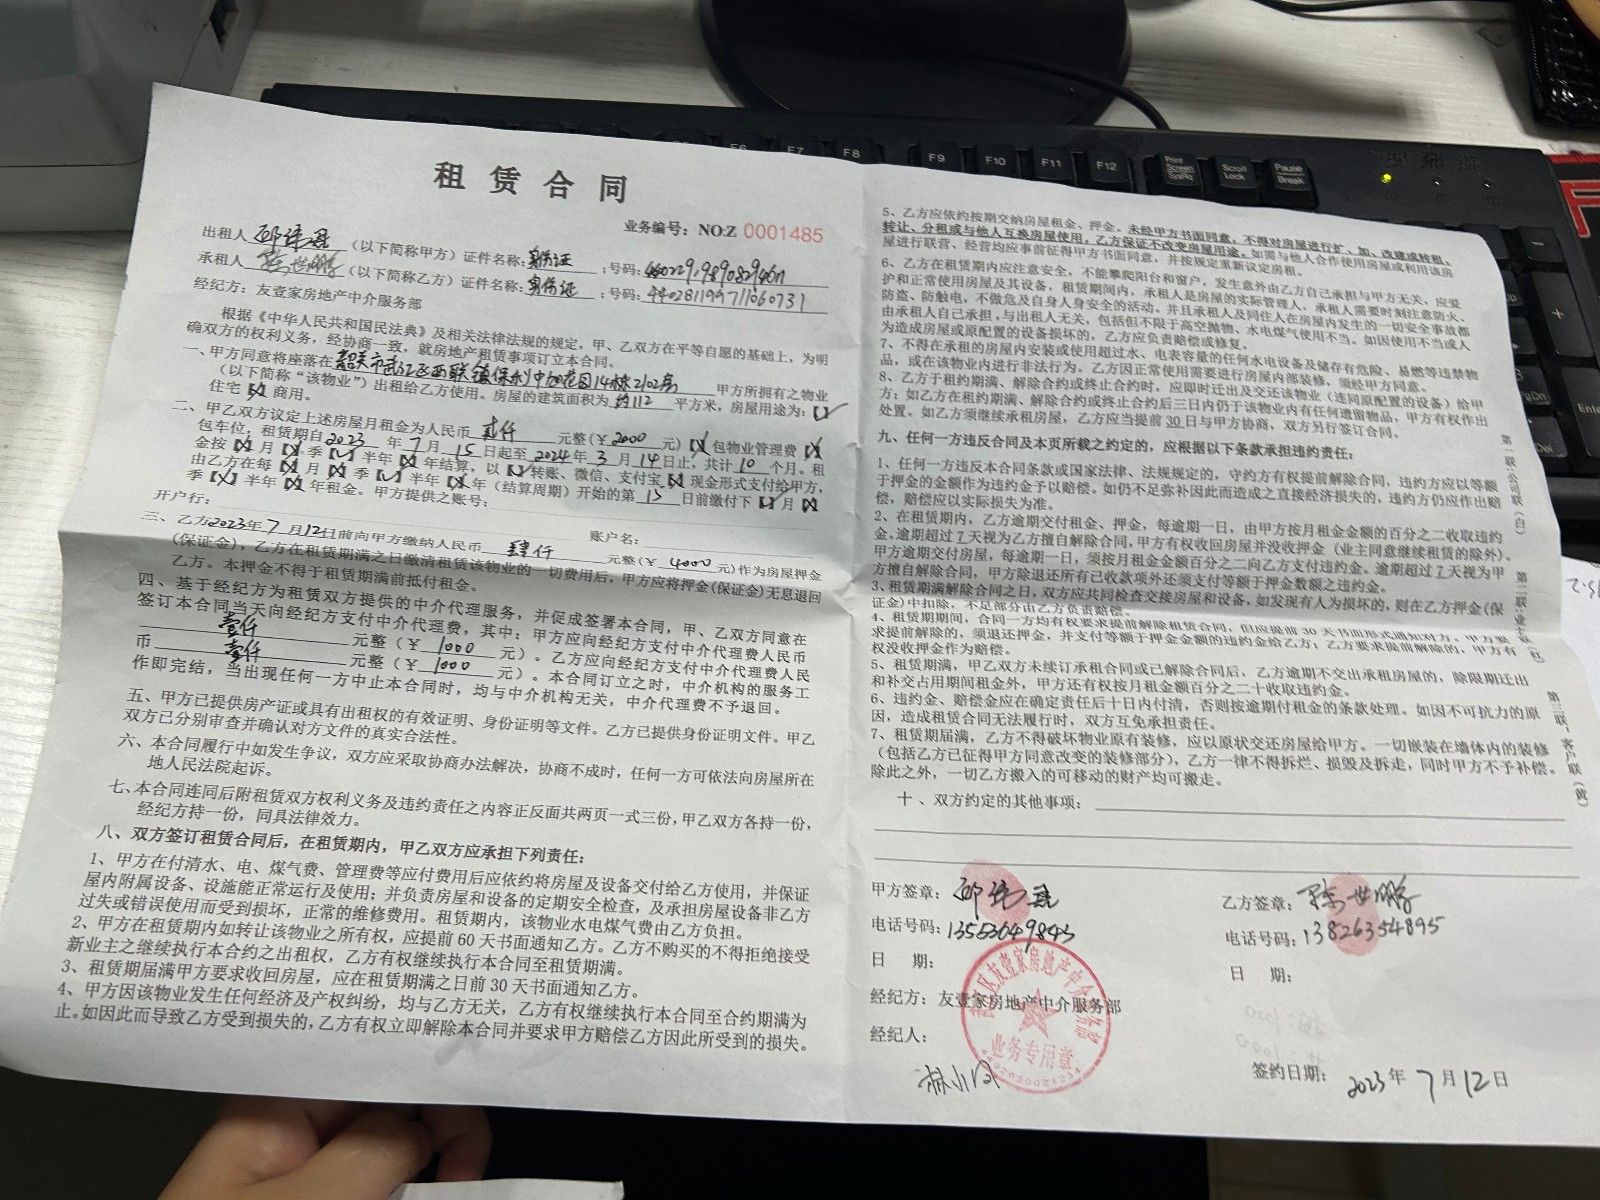 租赁合同
业务编号：NO:Z 0001485
出租人 （以下简称甲方）证件名称：身份证；号码：
承租人 （以下简称乙方）证件名称：身份证；号码：440281199711060731
经纪方：友壹家房地产中介服务部
根据《中华人民共和国民法典》及相关法律法规的规定，甲、乙双方在平等自愿的基础上，为明
确双方的权利义务，经协商一致，就房地产租赁事项订立本合同。
一、甲方同意将座落在韶关市武江区西联镇保利中旭花园14栋2102房 甲方所拥有之物业
（以下简称“该物业”）出租给乙方使用。房屋的建筑面积为 约112 平方米，房屋用途为：【✓】
住宅【×】商用。
二、甲乙双方议定上述房屋月租金为人民币 贰仟 元整（￥2000 元）【×】包物业管理费【×】
包车位，租赁期自2023年7月15日起至2024年3月14日止，共计10个月。租
金按【×】月【×】季【✓】半年【×】年结算，以【✓】转账、微信、支付宝【×】现金形式支付给甲方，
由乙方在每【×】月【×】季【✓】半年【×】年（结算周期）开始的第15日前缴付下【✓】月【×】
季【×】半年【×】年租金。甲方提供之账号：
开户行： 账户名：
三、乙方2023年7月12日前向甲方缴纳人民币 肆仟 元整（￥4000元）作为房屋押金
（保证金），乙方在租赁期满之日缴清租赁该物业的一切费用后，甲方应将押金（保证金）无息退回
乙方。本押金不得于租赁期满前抵付租金。
四、基于经纪方为租赁双方提供的中介代理服务，并促成签署本合同，甲、乙双方同意在
签订本合同当天向经纪方支付中介代理费，其中：甲方应向经纪方支付中介代理费人民币
壹仟 元整（￥1000 元）。乙方应向经纪方支付中介代理费人民
币 壹仟 元整（￥1000 元）。本合同订立之时，中介机构的服务工
作即完结，当出现任何一方中止本合同时，均与中介机构无关，中介代理费不予退回。
五、甲方已提供房产证或具有出租权的有效证明、身份证等文件。乙方已提供身份证明文件。甲乙
双方已分别审查并确认对方文件的真实合法性。
六、本合同履行中如发生争议，双方应采取协商办法解决，协商不成时，任何一方可依法向房屋所在
地人民法院起诉。
七、本合同连同后附租赁双方权利义务及违约责任之内容正反面共两页一式三份，甲乙双方各持一份，
经纪方持一份，同具法律效力。
八、双方签订租赁合同后，在租赁期内，甲乙双方应承担下列责任：
1、甲方在付清水、电、煤气费、管理费等应付费用后应依约将房屋及设备交付给乙方使用，并保证
屋内附属设备、设施能正常运行及使用；并负责房屋和设备的定期安全检查，及承担房屋设备非乙方
过失或错误使用而受到损坏，正常的维修费用。租赁期内，该物业水电煤气费由乙方负担。
2、甲方在租赁期内如转让该物业之所有权，应提前60天书面通知乙方。乙方不购买的不得拒绝接受
新业主之继续执行本合约之出租权，乙方有权继续执行本合同至租赁期满。
3、租赁期届满甲方要求收回房屋，应在租赁期满之日前30天书面通知乙方。
4、甲方因该物业发生任何经济及产权纠纷，均与乙方无关，乙方有权继续执行本合同至合约期满为
止。如因此而导致乙方受到损失的，乙方有权立即解除本合同并要求甲方赔偿乙方因此所受到的损失。
5、乙方应依约按期交纳房屋租金、押金。未经甲方书面同意，不得对房屋进行扩、加、改建或转租、
转让、分租或与他人互换房屋使用，乙方保证不改变房屋用途。如需与他人合作使用房屋或利用该房
屋进行联营、经营均应事前征得甲方书面同意，并按规定重新议定房租。
6、乙方在租赁期内应注意安全，不能攀爬阳台和窗户，发生意外由乙方自己承担与甲方无关，应爱
护和正常使用房屋及其设备，租赁期间内，承租人是房屋的实际管理人，承租人需要时刻注意防火、
防盗、防触电，不做危及自身人身安全的活动。并且承租人及同住人在房屋内发生的一切安全事故都
由承租人自己承担，与出租人无关，包括但不限于高空抛物、水电煤气使用不当。如因使用不当或人
为造成房屋或原配置的设备损坏的，乙方应负责赔偿或修复。
7、不得在承租的房屋内安装或使用超过水、电表容量的任何水电设备及储存有危险、易燃等违禁物
品，或在该物业内进行非法行为。乙方因正常使用需要进行房屋内部装修，须经甲方同意。
8、乙方于租约期满、解除合约或终止合约时，应即时迁出及交还该物业（连同原配置的设备）给甲
方；如乙方在租约期满、解除合约或终止合约后三日内仍于该物业内有任何遗留物品，甲方有权作出
处置。如乙方须继续承租房屋，乙方应当提前30日与甲方协商，双方另行签订合同。
九、任何一方违反合同及本页所载之约定的，应根据以下条款承担违约责任：
1、任何一方违反本合同条款或国家法律、法规规定的，守约方有权提前解除合同，违约方应以等额
于押金的金额作为违约金予以赔偿。如仍不足弥补因此而造成之直接经济损失的，违约方仍应作出赔
偿，赔偿应以实际损失为准。
2、在租赁期内，乙方逾期交付租金、押金，每逾期一日，由甲方按月租金金额的百分之二收取违约
金。逾期超过7天视为乙方擅自解除合同，甲方有权收回房屋并没收押金（业主同意继续租赁的除外）。
甲方逾期交付房屋，每逾期一日，须按月租金金额百分之二向乙方支付违约金。逾期超过7天视为甲
方擅自解除合同，甲方除退还所有已收款项外还须支付等额于押金数额之违约金。
3、租赁期满解除合同之日，双方应共同检查交接房屋和设备，如发现有人为损坏的，则在乙方押金（保
证金）中扣除，不足部分由乙方负责赔偿。
4、租赁期期间，合同一方均有权要求提前解除租赁合同，但应提前30天书面形式通知对方。甲方要
求提前解除的，须退还押金，并支付等额于押金金额的违约金给乙方；乙方要求提前解除的，甲方有
权没收押金作为赔偿。
5、租赁期满，甲乙双方未续订承租合同或已解除合同后，乙方逾期不交出承租房屋的，除限期迁出
和补交占用期间租金外，甲方还有权按月租金额百分之二十收取违约金。
6、违约金、赔偿金应在确定责任后十日内付清，否则按逾期付租金的条款处理。如因不可抗力的原
因，造成租赁合同无法履行时，双方互免承担责任。
7、租赁期届满，乙方不得破坏物业原有装修，应以原状交还房屋给甲方。一切嵌装在墙体内的装修
（包括乙方已征得甲方同意改变的装修部分），乙方一律不得拆烂、损毁及拆走，同时甲方不予补偿。
除此之外，一切乙方搬入的可移动的财产均可搬走。
十、双方约定的其他事项：
甲方签章： 乙方签章：
电话号码：13553049843 电话号码：13826354895
日 期： 日 期：
经纪方：友壹家房地产中介服务部
经纪人：
签约日期：2023年7月12日
业务专用章
第一联：公司联（白）
第二联：业主联（红）
第三联：客户联（黄）
F6 F7 F8 F9 F10 F11 F12
Print Screen SysRq
Scroll Lock
Pause Break